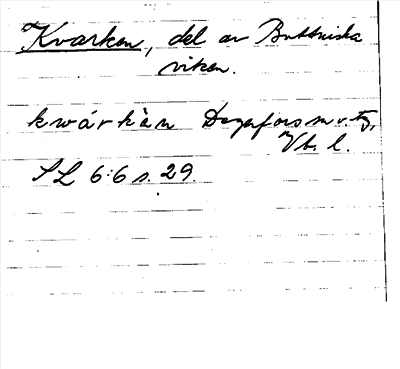 Kvarken, del av Bottniska
viken.
kwárkàn Degerfors m. fl.,
Vb. l.
SL 6:6 s. 29.